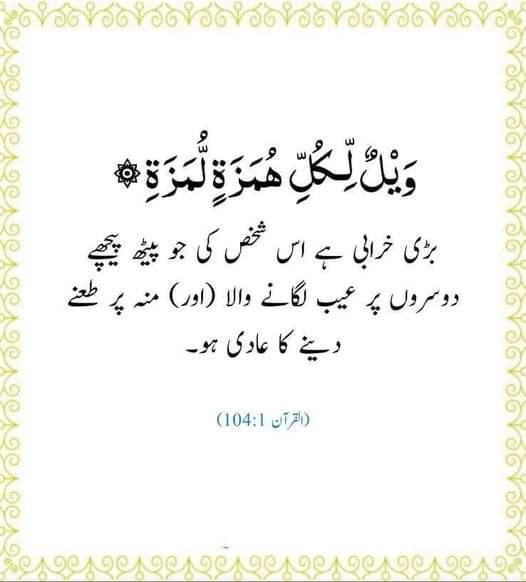 وَيْلٌ لِّكُلِّ هُمَزَةٍ لُّمَزَةٍ ۞
بڑی خرابی ہے اس شخص کی جو پیٹھ پیچھے
دوسروں پر عیب لگانے والا (اور) منہ پر طعنے
دینے کا عادی ہو۔
(القرآن 104:1)